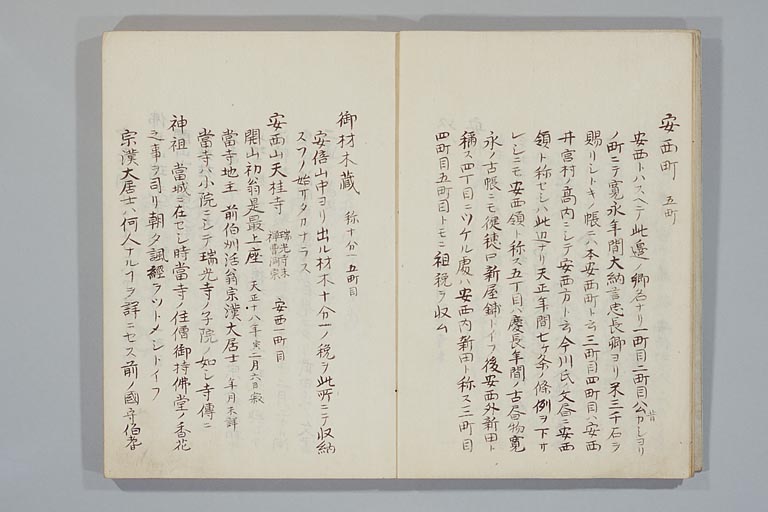 安西町 五町
安西トハスヘテ此邊ノ郷名ナリ一町目二町目公カシヨリ昔
ノ町ニテ寛永年間大納言忠長卿ヨリ米三千石ヲ
賜リシトキノ帳ニハ本安西町ト云三町目四町目ハ安西
井宮村ノ高内ニシテ安西方ト云今川氏文昏ニ安西
領ト称セシハ此辺ナリ天正年間七ケ条ノ條例ヲ下サ
レシニモ安西領ト称ス五丁目ハ慶長年間ノ古昏物寛
永ノ古帳ニモ從穂口新屋鋪トイフ後安西外新田ト
稱ス四丁目ニツケル處ハ安西内新田ト称ス三町目
四町目五町目トモニ祖税ヲ収ム
御材木蔵 称十分一五町目
安倍山中ヨリ出ル材木十分一ノ税ヲ此所ニテ収納
スフノ始サタカナラス
安西山天桂寺 瑞光寺末 禅曹洞宗 安西一町目
開山初翁是最上座 天正十八年寅二月六日寂
當寺地主 前伯州活翁宗漢大居士 年月未詳
當寺ハ小院ニシテ瑞光寺ノ子院ノ如シ寺傳ニ
神祖 當城ニ在セシ時當寺ノ住僧御持佛堂ノ香花
之事ヲ司リ朝夕諷經ヲツトメシトイフ
宗漢大居士ハ何人ナルフヲ詳ニセス前ノ國守伯耆